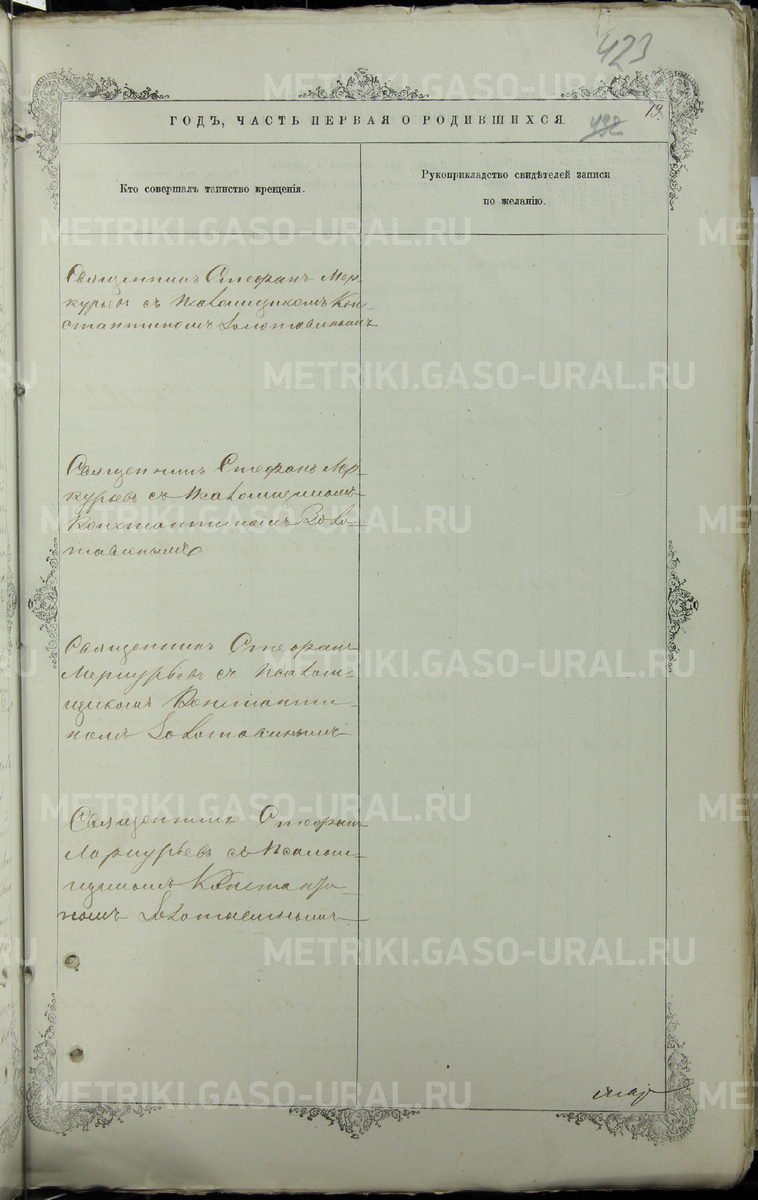 423
19.
432
ГОДЪ, ЧАСТЬ ПЕРВАЯ О РОДИВШИХСЯ
Кто совершалъ таинство крещенія.
Рукоприкладство свидѣтелей записи
по желанію.
Священникъ Стефанъ Мер-
курьевъ съ Псаломщикомъ Кон-
стантиномъ Золотавинымъ
Священникъ Стефанъ Мер-
курьевъ съ Псаломщикомъ
Константиномъ Золо-
тавинымъ
Священникъ Стефанъ
Меркурьевъ съ Псалом-
щикомъ Константи-
номъ Золотавинымъ
Священникъ Стефанъ
Меркурьевъ съ Псалом-
щикомъ Константи-
номъ Золотавинымъ
METRIKI.GASO-URAL.RU